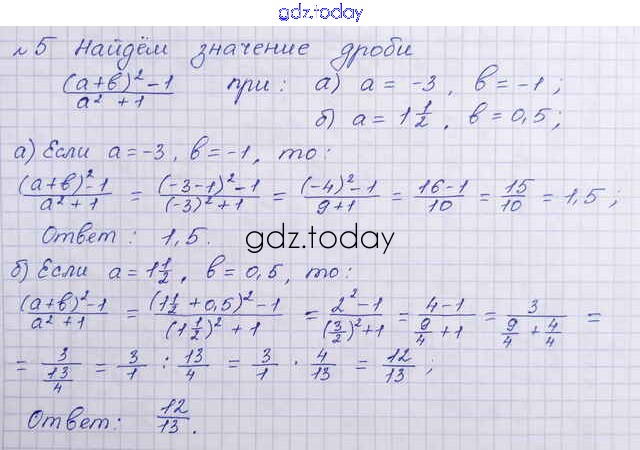 gdz.today
№5 Найдём значение дроби
((a+b)²-1)/(a²+1) при: а) a = -3, b = -1;
б) a = 1 1/2, b = 0,5;
а) Если a = -3, b = -1, то:
((a+b)²-1)/(a²+1) = ((-3-1)²-1)/((-3)²+1) = ((-4)²-1)/(9+1) = (16-1)/10 = 15/10 = 1,5;
Ответ: 1,5.
gdz.today
б) Если a = 1 1/2, b = 0,5, то:
((a+b)²-1)/(a²+1) = ((1 1/2 + 0,5)²-1)/((1 1/2)²+1) = (2²-1)/((3/2)²+1) = (4-1)/(9/4+1) = 3/(9/4+4/4) =
= 3/(13/4) = 3/1 : 13/4 = 3/1 · 4/13 = 12/13;
Ответ: 12/13.